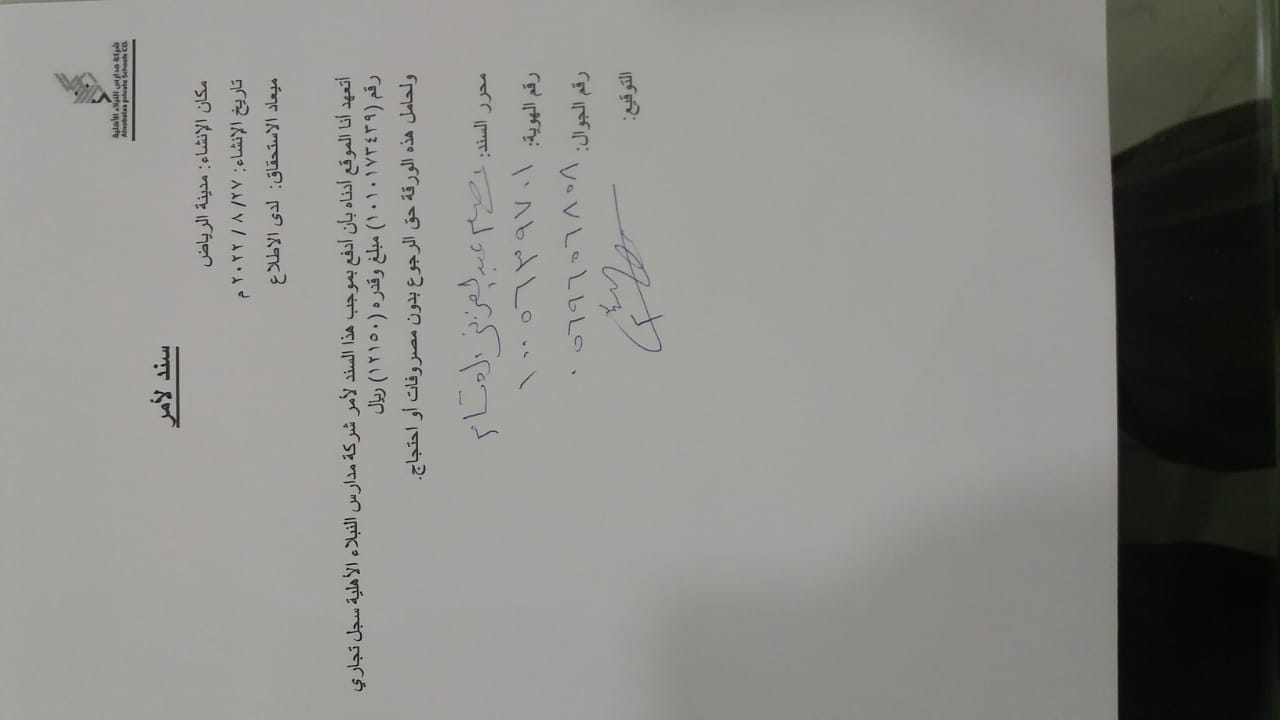 شركة مدارس النبلاء الأهلية
Alnobalaa private Schools CO.
سند لأمر
مكان الإنشاء: مدينة الرياض
تاريخ الإنشاء: ٢٧/ ٨ / ٢٠٢٢ م
ميعاد الاستحقاق: لدى الاطلاع
أتعهد أنا الموقع أدناه بأن أدفع بموجب هذا السند لأمر شركة مدارس النبلاء الأهلية سجل تجاري
رقم (١٠١٠١٧٣٤٣٩) مبلغ وقدره (١٢١٥٠) ريال
ولحامل هذه الورقة حق الرجوع بدون مصروفات أو احتجاج.
محرر السند: عبدالعزيز
رقم الهوية: ١٠٠٥٦٣٩٧٠١
رقم الجوال: ٠٥٦٩٦٥٦٨٥٨
التوقيع: